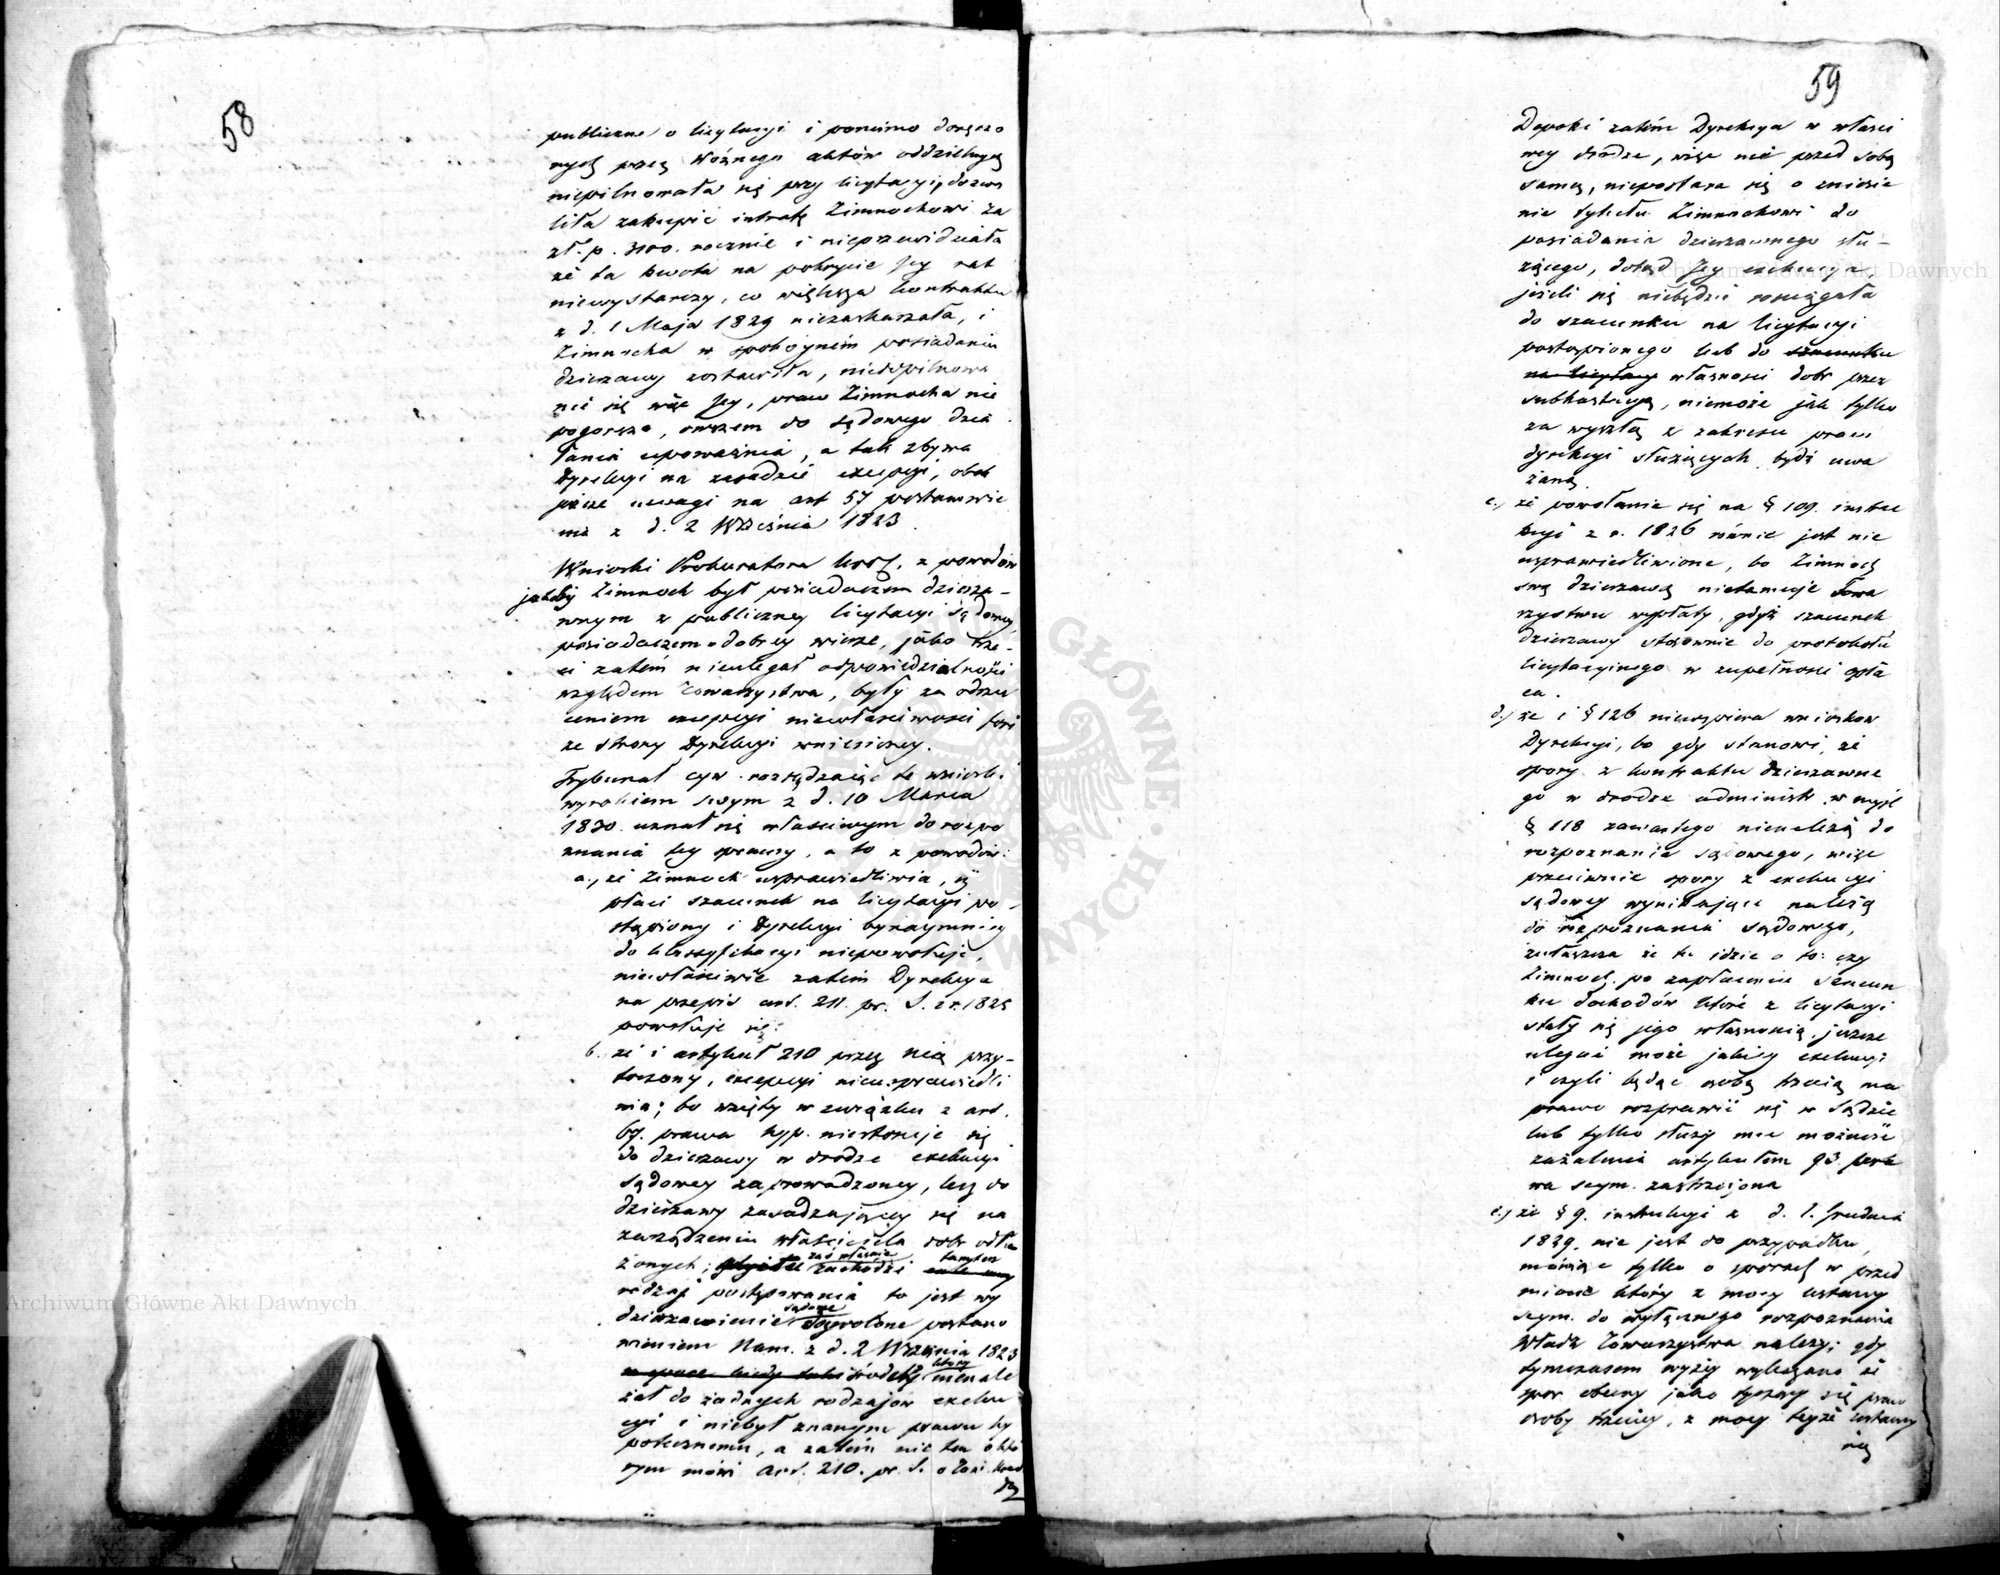 58
publicznej o licytacyi i pomimo doręczo
nych przez Woźnego aktów oddzielnych
niepilnowała się przy licytacyi, dozwo
liła zakupić intratę Zimnochowi za
zł. p. 3100. rocznie i nieprzewidziała
że ta kwota na pokrycie Jey rat
niewystarczy, co większa kontraktu
z d. 1 Maja 1829 niezaskarzała, i
Zimnocha w spokoynem posiadaniu
dzierzawy zostawiła, niedopilnowa
nie się więc Jey, praw Zimnocha nie
pogorsza, owszem do sądowego dzia
łania upoważnia, a tak zbywa
Dyrekcyi na zasadzie excepcyi, obok
uwagi na art 57 postanowie
nia z d. 2 Września 1823.
Wnioski Prokuratora Król. z powodów
jakoby Zimnoch był posiadaczem dzierza-
wnym z publiczney licytacyi sądowey
posiadaczem dobrey wierze, jako trze-
ci zatém nieulegał odpowiedzialności
względem Towarzystwa, były za odrzu
ceniem excepcyi niewłaściwości fori
ze strony Dyrekcyi wniesioney.
Trybunał cyw. rozsądzaiąc te wnioski
wyrokiem swym z d. 10 Marca
1830. uznał się właściwym do rozpo
znania tey sprawy, a to z powodów:
a., że Zimnoch usprawiedliwia, iż
płaci szacunek na licytacyi po-
stąpiony i Dyrekcyi bynaymniey
do klassyfikacyi niepowołuje,
niewłaściwie zatém Dyrekcya
na przepis art. 211. pr. S. z r. 1825
powołuje się:
b. że i artykuł 210 przez nią przy-
toczony, excepcyi nieusprawiedli
wia; bo wzięty w związku z art.
69. prawa hyp. niestosuje się
do dzierzawy w drodze exekucyi
sądowey zaprowadzoney, lecz do
dzierzawy zasadzającey się na
zarządzeniu właściciela dobr odłu
żonych; tu zaś właśnie zachodzi tamten
rodzaj postępowania to jest wy
dzierzawienie sądowe dozwolone postano
wieniem Nam. z d. 2 Września 1823
który nienale
żał do żadnych rodzajów exeku
cyi i niebył znanym prawu hy
potecznemu, a zatém nie ten o któ
rym mówi art. 210. pr. S. o Tow. Kred.
59
Dopoki zatém Dyrekcya w właści
wey drodze, więc nie przed sobą
samą, niepostara się o zniesie
nie tytułu Zimnochowi do
posiadania dzierzawnego słu-
zącego, dotąd Jey exekucya
jeżeli się niebędzie rosciągała
do szacunku na licytacyi
postąpionego lub do szacunku
na licytacyi własności dobr przez
subhastacyą, niemoże jak tylko
za wyszłą z zakresu praw
dyrekcyi służących bydź uwa
żaną.
c., że powołanie się na § 109. instru
kcyi z r. 1826 równie jest nie
usprawiedliwione, bo Zimnoch
swą dzierzawą nietamuje Towa
rzystwu wypłaty, gdyż szacunek
dzierzawy stosownie do protokołu
licytacyinego w zupełności opła
ca.
d., że i § 126 niewspiera wniosków
Dyrekcyi, bo gdy stanowi, że
spory z kontraktu dzierzawne
go w drodze administr. w myśl
§ 118 zawartego nienależą do
rozpoznania sądowego, więc
przeciwnie spory z exekucyi
sądowey wynikające należą
do rozpoznania sądowego,
zwłaszcza że tu idzie o to: czy
Zimnoch po zapłaceniu szacun
ku dochodów które z licytacyi
stały się jego własnością, jeszcze
ulegać może jakiey exekucyi
i czyli będąc osobą trzecią ma
prawo rozprawić się w Sądzie
lub tylko służy mu możność
zażalenia artykułem 93. pra
wa seym. zastrzeżona
e., że § 9. instrukcyi z d. 1. Grudnia
1829. nie jest do przypadku,
mówiąc tylko o sporach w przed
miocie który z mocy ustawy
seym. do wyłącznego rozpoznania
Władz Towarzystwa należy; gdy
tymczasem wyżey wykazano że
spor obecny jako tyczący się praw
osoby trzeciey, z mocy teyże ustawy
Archiwum Główne Akt Dawnych
Archiwum Główne Akt Dawnych